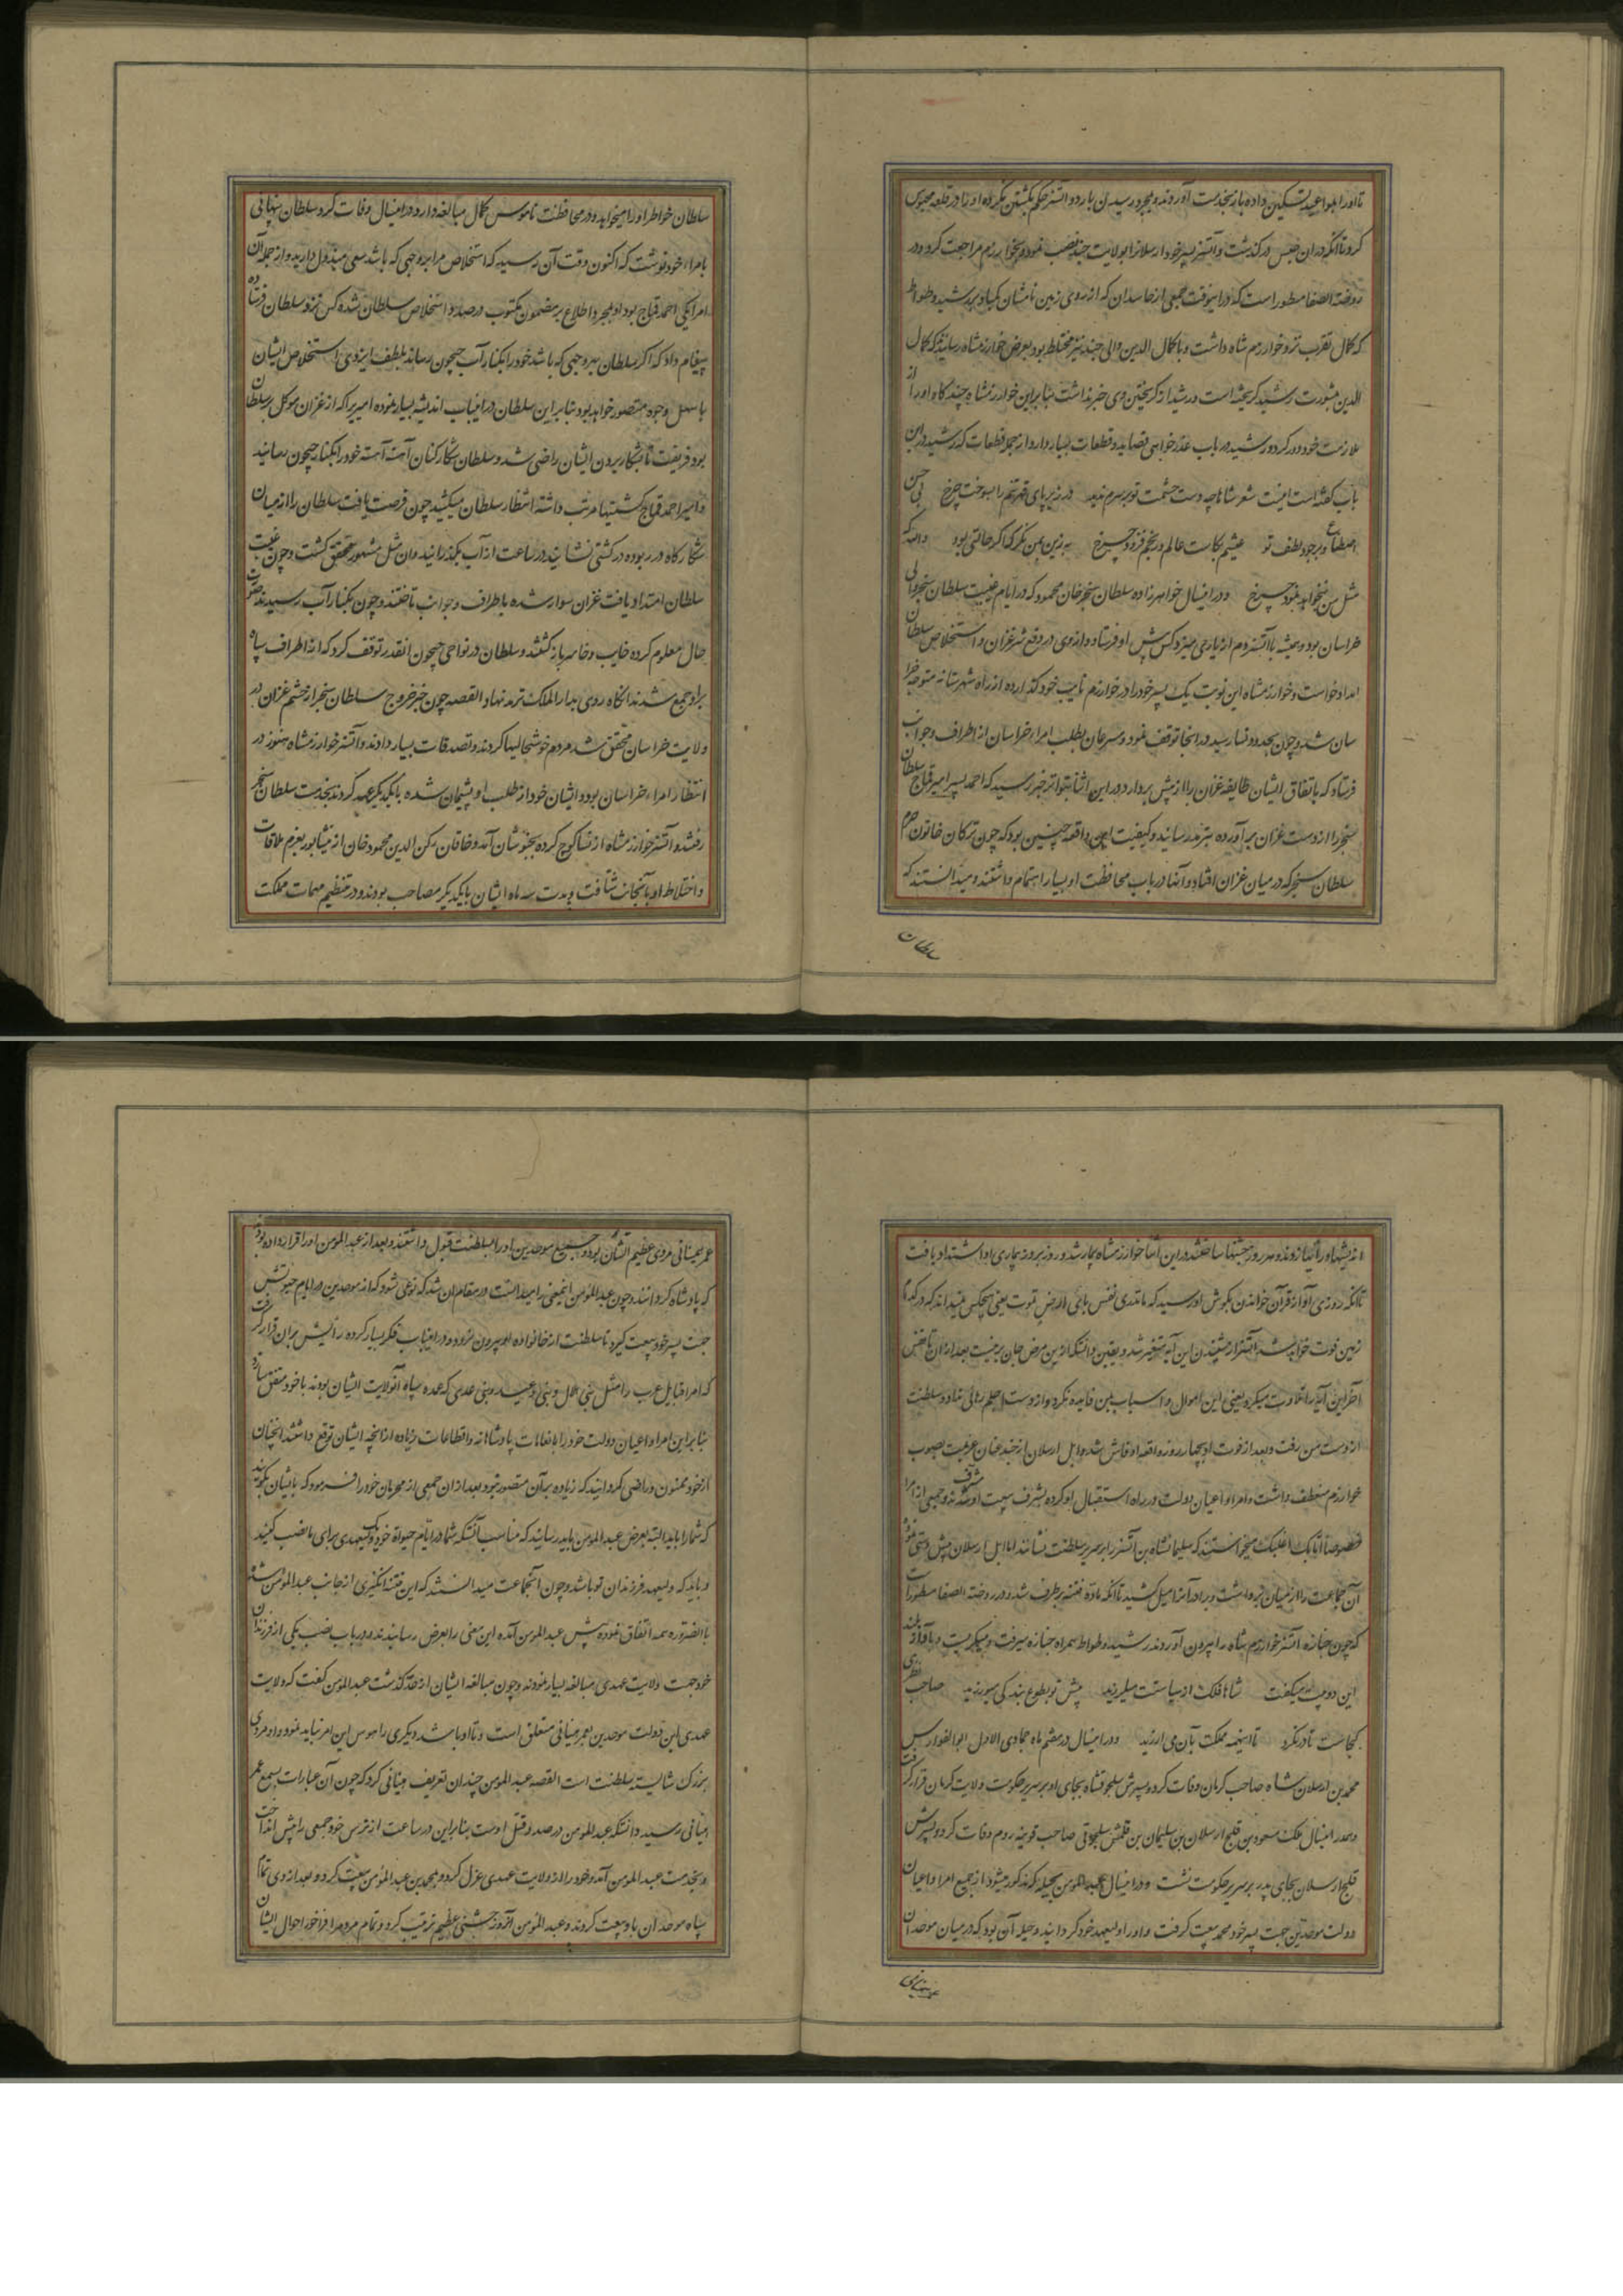 تا او را بمواعید تسکین داده باز بخدمت آوردند و بمجرد رسیدن باردو آتسز حکم بکشتن نکرده او را در قلعه محبوس
کرد تا آنکه در ان حبس درگذشت و آتسز پسر خود ارسلانرا بولایت جند نصب نمود و بخوارزم مراجعت کرد و در
روضة الصفا مسطور است که در اینوقت جمعی از حاسدان که از روی زمین نامشان کم باد برشید وطواط
که کمال تقرب نزد خوارزم شاه داشت و با کمال الدین والی جند نیز مختلط بود بعرض خوارزمشاه رسانیدند که کمال
الدین بمشورت رشید گریخته است و رشید از گریختن وی خبر نداشت بنابراین خوارزمشاه چند گاه او را از
ملازمت خود دور کرد و رشید در باب عذر خواهی قصاید و قطعات بسیار دارد از جمله قطعات که رشید در این
باب گفته است اینست شعر شاها چو دست حشمت تو بر سرم ندید در زیر پای قهر تنم را بسوخت چرخ بی حسن
اصطناع و بی جود لطف تو عیشم بکاست عالم و رنجم فزود چرخ به زین بمن نگر که اگر حالتی بود والله که
مثل من نخواهد نمود چرخ و در اینسال خواهرزاده سلطان سنجر خان محمود که در ایام غیبت سلطان سنجر والی
خراسان بود و همیشه با آتسز دم از یاری میزد کس پیش او فرستاد و از وی در دفع شر غزان و استخلاص سلطان
امداد خواست و خوارزمشاه این نوبت یک پسر خود را در خوارزم نایب خود کذارده از راه شهرستانه متوجه خرا
سان شد و چون بحدود نسا رسید در انجا توقف نمود و سرعان بطلب امراء خراسان از اطراف و جوانب
فرستاد که باتفاق ایشان طایفه غزان را از پیش بردارد در این اثنا بتواتر خبر رسید که احمد پسر امیر قماج سلطان
سنجر را از دست غزان بر آورده بترمد رسانید و کیفیت این واقعه چنین بود که چون ترکان خاتون حرم
سلطان سنجر که در میان غزان افتاد و آنها در باب محافظت او بسیار اهتمام داشتند و میدانستند که
سلطان
سلطان خواطر او را میخواهد و در محافظت ناموس کمال مبالغه دارد در اینسال وفات کرد سلطان پنهانی
بامراء خود نوشت که اکنون وقت آن رسید که استخلاص مرا بهر وجهی که باشد سعی مبذول دارید و از جمله آن
امرا یکی احمد قماج بود او بمجرد اطلاع بر مضمون مکتوب در صدد استخلاص سلطان شده کس نزد سلطان فرستاده
پیغام داد که اکر سلطان بهر وجهی که باشد خود را بکنار آب جیحون رساند بلطف ایزدی استخلاص ایشان
باسهل وجوه متصور خواهد بود بنابراین سلطان در اینباب اندیشه بسیار نموده امیریرا که از غزان موکل بر سلطان
بود فریفت تا بشکار بردن ایشان راضی شد و سلطان شکار کنان آهسته آهسته خود را بکنار جیحون رسانید
و امیر احمد قماج کشتیها مرتب داشته انتظار سلطان میکشید چون فرصت یافت سلطان را از میان
شکارگاه در ربوده در کشتی نشانید در ساعت از آب بگذرانید و ان مثل مشهور محقق کشت و چون غیبت
سلطان امتداد یافت غزان سوار شده باطراف و جوانب تاختند و چون بکنار آب رسیدند حقیقت
حال معلوم کرده خایب و خاسر باز گشتند و سلطان در نواحی جیحون انقدر توقف کرد که از اطراف سپاه
براو جمع شدند انکاه روی بدار الملک ترمد نهاد القصه چون خبر خروج سلطان سنجر از خشم غزان در
ولایت خراسان محقق شد مردم خوشحالیها کردند و تصدقات بسیار دادند و آتسز خوارزمشاه هنوز در
انتظار امراء خراسان بود و ایشان خود از طلب او پشیمان شده بایکدیگر عهد کردند بخدمت سلطان سنجر
رفتند و آتسز خوارزمشاه از نسا کوچ کرده بخبوشان آمد و خاقان رکن الدین محمود خان از نیشابور بعزم ملاقات
و اختلاط او بآنجانب شتافت و مدت سه ماه ایشان بایکدیگر مصاحب بودند و در تنظیم مهمات مملکت
اندیشها و رأیها زدند و هر روز جشنها ساختند در این اثنا خوارزمشاه بیمار شد و روز بروز بیماری او اشتداد یافت
تا آنکه روزی آواز قرآن خواندن بکوش او رسید که ما تدری نفس بای ارض تموت یعنی هیچکس نمیداند که در کدام
زمین فوت خواهد شد آتسز از شنیدن این آیه متغیر شد و یقین دانست که از ین مرض جان بر نیست بعد از ان تا نفس
آخر این آیه را تلاوت میکرد یعنی این اموال و اسباب بمن فایده نکرد و از دست اجلم رهائی نداد و سلطنت
از دست من رفت و بعد از فوت او بچهار روز واقعه او فاش شد و ایل ارسلان از جند عنان عزیمت صوب
خوارزم منعطف داشت و امرا و اعیان دولت در راه استقبال او کرده بشرف بیعت او مشرف شدند و جمعی از امرا
خصوصا اتابک اغلبک میخواستند که سلیمانشاه بن آتسز را بر سریر سلطنت نشانند اما ایل ارسلان پیش دستی نموده
آن جماعت را از میان برداشت و برادر آنرا میل کشید تا آنکه ماده فتنه بر طرف شد و در روضة الصفا مسطور است
که چون جنازه آتسز خوارزم شاه را بیرون آوردند رشید وطواط همراه جنازه میرفت و میکریست و بآواز بلند
این دو بیت میکفت شاها فلک از سیاستت میلرزید پیش تو بطوع بندگی میورزید صاحب نظری
کجاست تا درنگرد تا اینهمه مملکت بآن می ارزید و در اینسال در هفتم ماه جمادی الاول ابو الفوارس
محمد بن ارسلان شاه صاحب کرمان وفات کرد و پسرش سلجوقشاه بجای او بر سریر حکومت ولایت کرمان قرار گرفت
و هم در اینسال ملک مسعود بن قلیج ارسلان بن سلیمان بن قلمش سلجوقی صاحب قونیه روم وفات کرد و پسرش
قلیج ارسلان بجای پدر بر سریر حکومت نشست و در اینسال عبد المومن بحیله که مذکور میشود از جمیع امرا و اعیان
دولت موحدین جهت پسر خود محمد بیعت گرفت و او را ولیعهد خود گردانید و حیله آن بود که در میان موحدان
عمر هنتانی
عمر هنتانی مردی عظیم الشان بود و جمیع موحدین او را بسلطنت قبول داشتند و بعد از عبد المومن او را قرار داده بودند
که پادشاه گردانند و چون عبد المومن اینمعنی را میدانست در مقام ان شد که نوعی شود که از موحدین در ایام حیوتش
جهت پسر خود بیعت گیرد تا سلطنت از خانواده او بیرون نرود و در اینباب فکر بسیار کرده رأیش بران قرار گرفت
که امراء قبایل عرب را مثل بنی هلال و بنی و بنی عدی که عمده سپاه آنولایت ایشان بودند باخود متفق سازد
بنابراین امرا و اعیان دولت خود را بانعامات پادشاهانه و اقطاعات زیاده از انچه ایشان توقع داشتند انچنان
از خود ممنون و راضی گردانید که زیاده بر آن متصور نبود بعد از ان جمعی از محرمان خود را فرمود که بایشان بگویند
که شما را باید البته بعرض عبد المومن باید رسانید که مناسب آنست که شما در ایام حیوة خود ولیعهدی برای ما نصب کنید
و باید که ولیعهد فرزندان تو باشد و چون آنجماعت میدانستند که این فتنه انگیزی از جانب عبد المومن شده
بالضروره همه اتفاق نموده پیش عبد المومن آمده این معنی را بعرض رسانیدند و در باب نصب یکی از فرزندان
خود جهت ولایت عهدی مبالغه بسیار نمودند و چون مبالغه ایشان از حد گذشت عبد المومن گفت که ولایت
عهدی این دولت موحدین بعمر هنتانی متعلق است و تا او باشد دیگری را هوس این امر نباید نمود و او مردی
بزرگ شایسته سلطنت است القصه عبد المومن چندان تعریف هنتانی کرد که چون آن عبارات بسمع عمر
هنتانی رسید دانست که عبد المومن در صدد قتل اوست بنابراین در ساعت از ترس خود جمعی را پیش انداخت
و بخدمت عبد المومن آمد و خود را از ولایت عهدی عزل کرد و بمحمد بن عبد المومن بیعت کرد و بعد از وی تمام
سپاه موحدان با و بیعت کردند و عبد المومن آنروز جشنی عظیم ترتیب کرد و تمام مردم را فراخور احوال ایشان